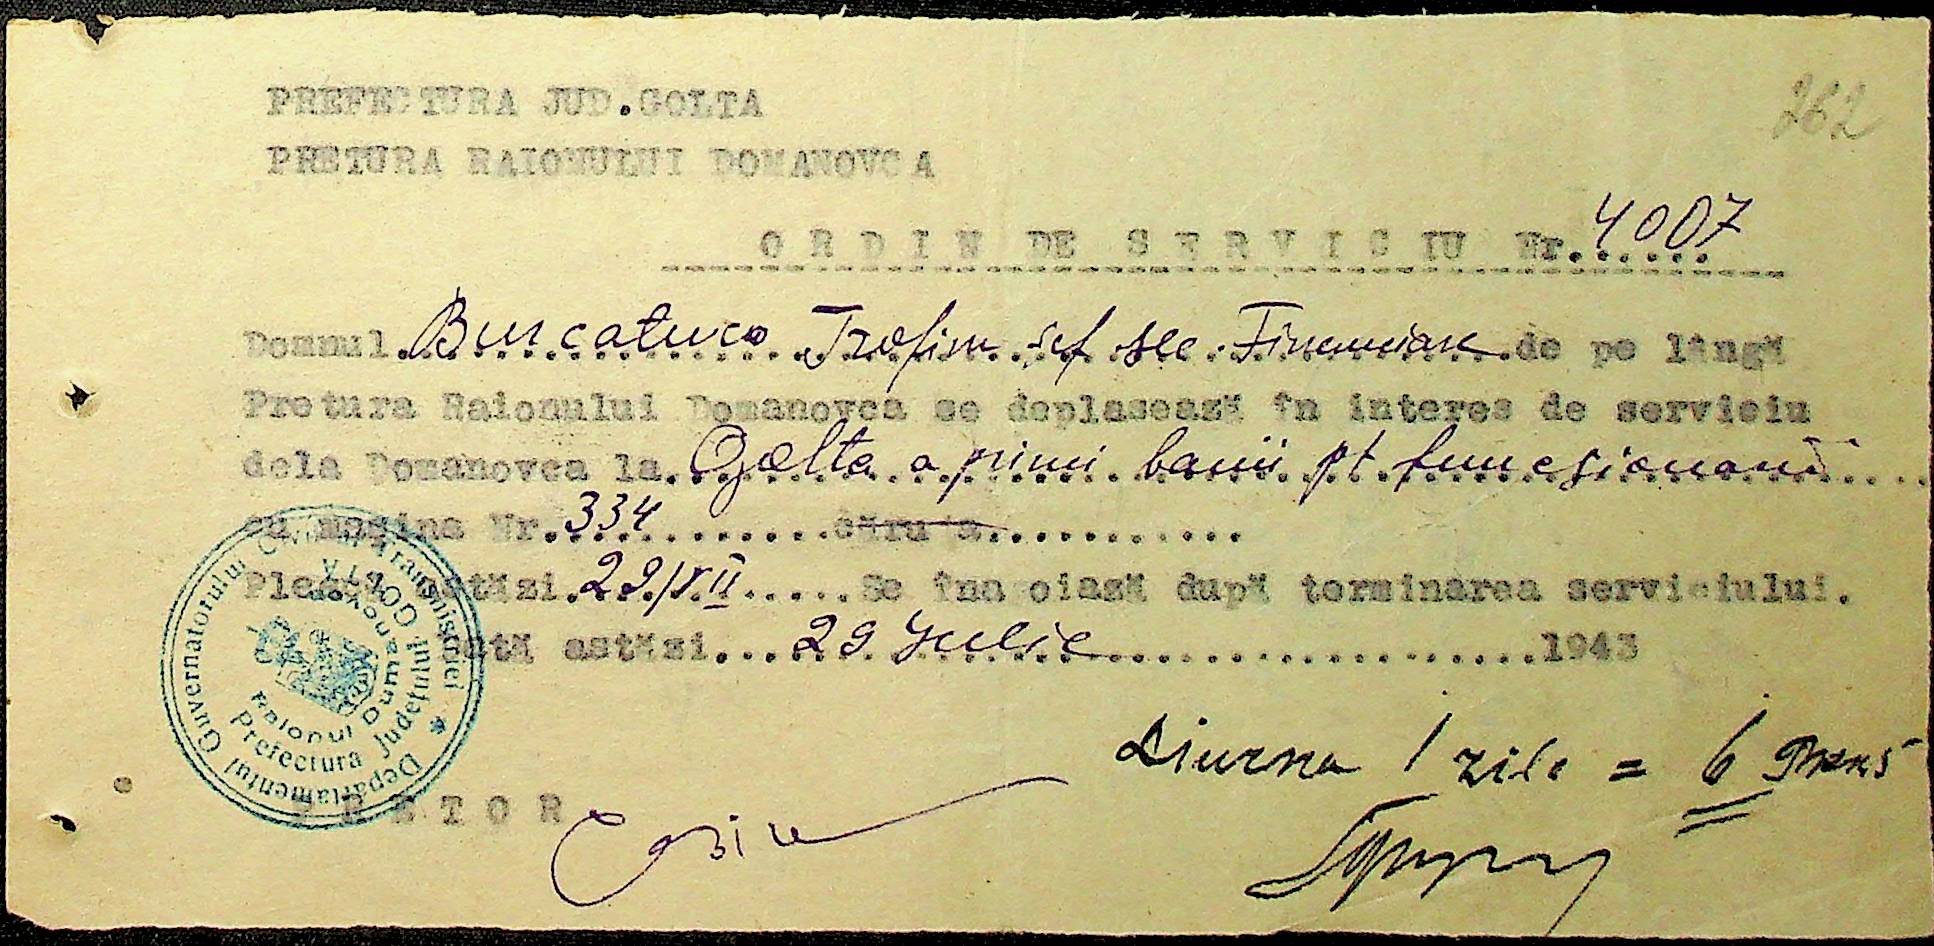 262
PREFECTURA JUD.GOLTA
PRETURA RAIONULUI DOMANOVCA
ORDIN DE SERVICIU Nr. 4007
Domnul Burcatuco Trofim șef sec. Financiară de pe lângă
Pretura Raionului Domanovca se deplasează în interes de serviciu
dela Domanovca la Golta a primi banii pt.
cu mașina Nr. 334 căruța
Pleacă astăzi 29/VII Se îna oiază după terminarea serviciului.
astăzi 29 Iulie 1943
Diurna 1 zile = 6
PRETOR
Guvernatorului Civil al Transnistriei * Departamentul
Prefectura Județului GOLTA
Raionul Dumanovca